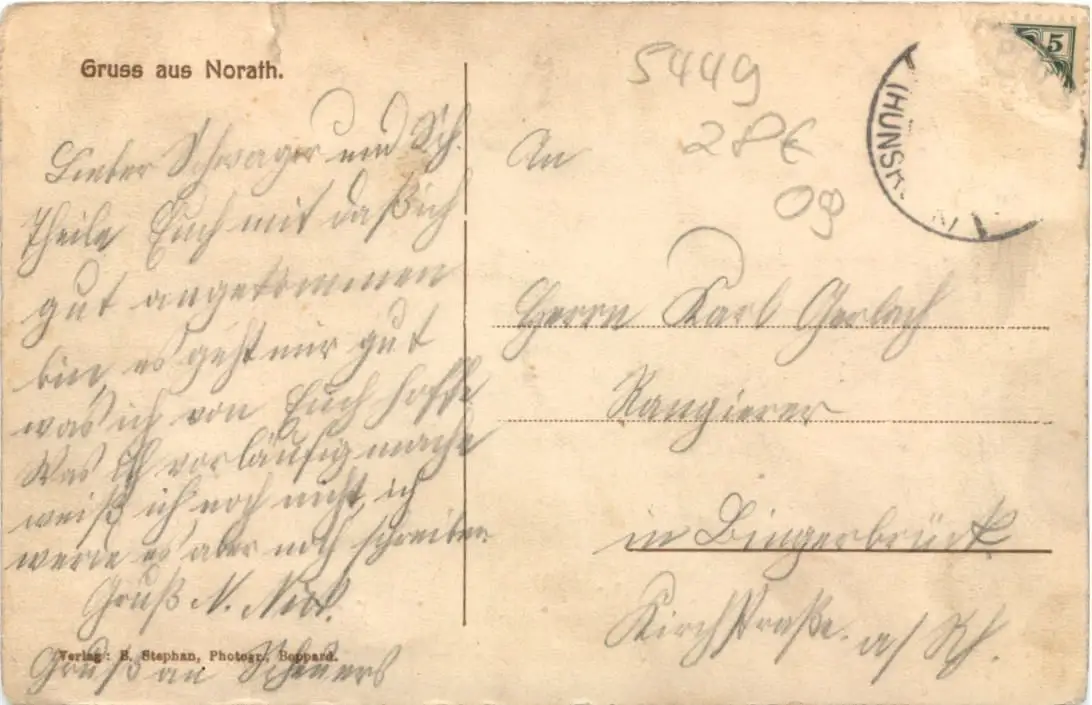 Gruss aus Norath.
Lieber Schwager und Sch.
Theile Euch mit daß ich
gut angekommen
bin, es geht mir gut
was ich von Euch hoffe
Was ich vorläufig mache
weiß ich noch nicht, ich
werde es aber noch schreiben
Gruß N.
Gruß an
Verlag: B. Stephan, Photogr., Boppard.
5449
28€
09
5
(HUNSR
An
Herrn Karl Gerlach
Rangierer
in Bingerbrück
Kirchstraße. a/Rh.